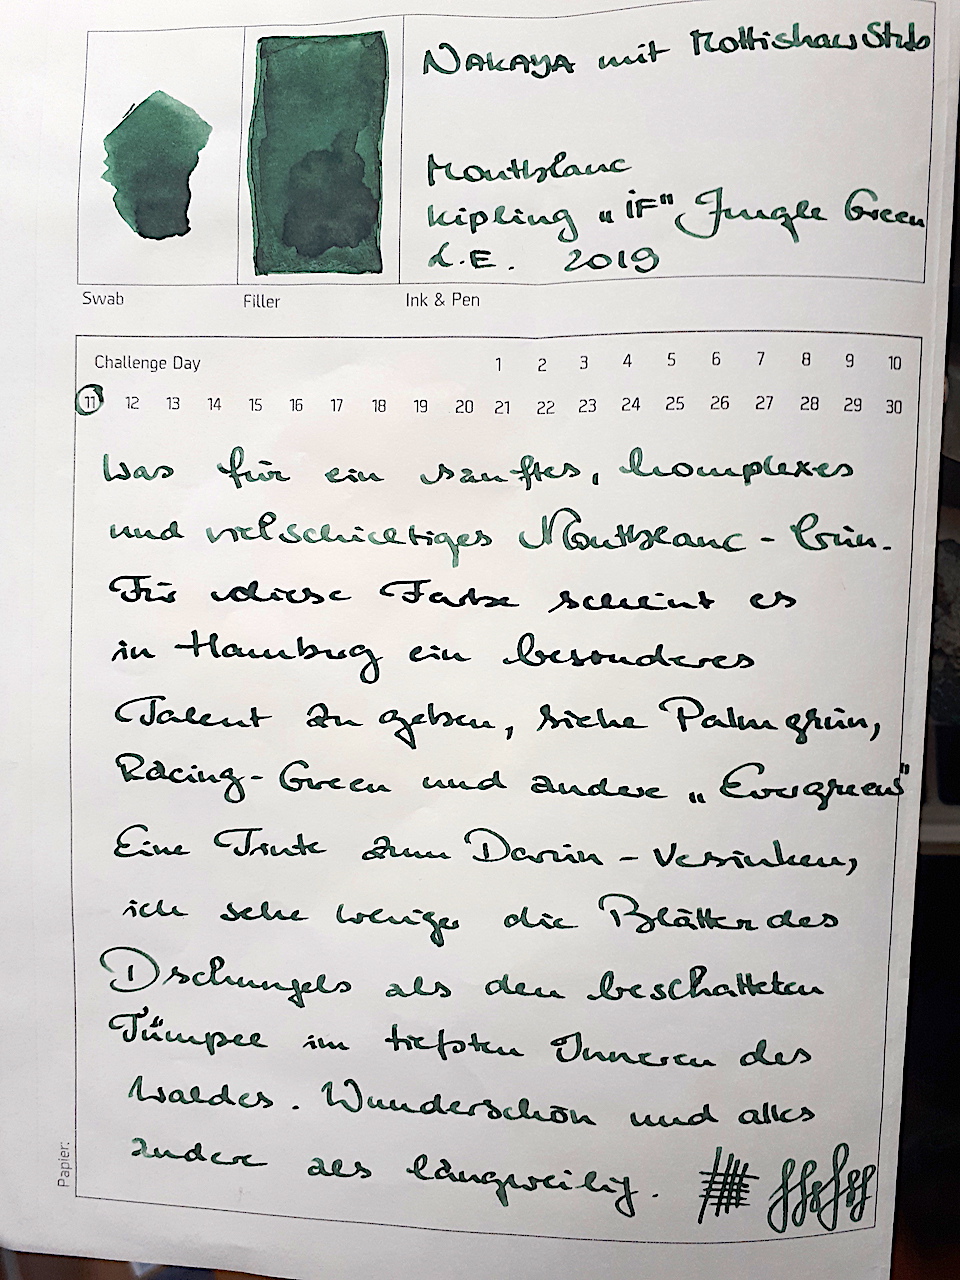 NAKAYA mit Mottishaw Stub
Montblanc
Kipling „IF" Jungle Green
L.E. 2019
Swab
Filler
Ink & Pen
Challenge Day 1 2 3 4 5 6 7 8 9 10
11 12 13 14 15 16 17 18 19 20 21 22 23 24 25 26 27 28 29 30
Was für ein sanftes, komplexes
und vielschichtiges Montblanc - Grün.
Für diese Farbe scheint es
in Hamburg ein besonderes
Talent zu geben, siehe Palmgrün,
Racing-Green und andere „Evergreens"
Eine Tinte zum Darin - Versinken,
ich sehe weniger die Blätter des
Dschungels als den beschatteten
Tümpel im tiefsten Inneren des
Waldes. Wunderschön und alles
andere als langweilig.
Papier: